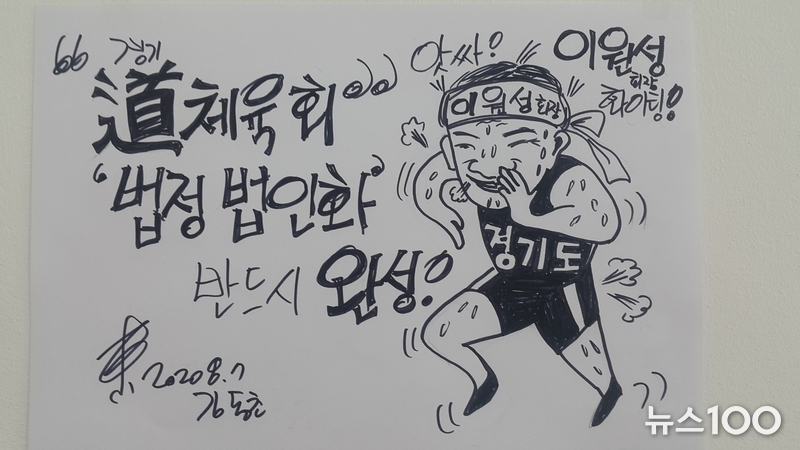 “ 경기
道체육회”
‘법정 법인화’
반드시 완성!
앗싸!
이원성
회장
화이팅!
이원성 회장
경기도
2020 8. 7
뉴스100